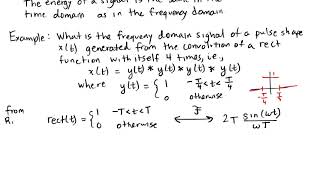 The energy of a signal is the same in the
time domain as in the frequency domain
Example: What is the frequency domain signal of a pulse shape
x(t) generated from the convolution of a rect
function with itself 4 times, i.e.,
x(t) = y(t) * y(t) * y(t) * y(t)
where y(t) = { 1 -T/4 < t < T/4
0 otherwise
-T/4 T/4
from
R. rect(t) = { 1 -T < t < T
0 otherwise
F
⟷ 2T sin(ωt)/ωT